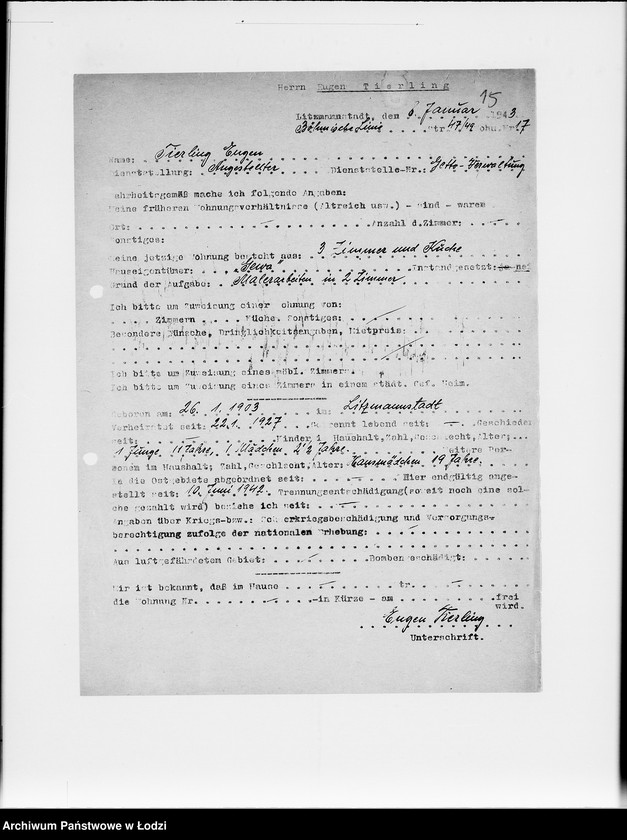 Herrn Eugen Tierling
15
Litzmannstadt, den 6. Januar 1943
Böhmische Linie Str. 47/49 Wohn.Nr. 17
Name: Tierling Eugen
Dienststellung: Angestellter Dienststelle-Nr.: Getto-Verwaltung
Wahrheitsgemäß mache ich folgende Angaben:
Meine früheren Wohnungsverhältnisse (Altreich usw.) - sind - waren
Ort: Anzahl d.Zimmer:
Sonstiges:
Meine jetzige Wohnung besteht aus: 3 Zimmer und Küche
Hauseigentümer: "Gewa" Instandgesetzt: ja nei
Grund der Aufgabe: Malerarbeiten in 2 Zimmer
Ich bitte um Zuweisung einer Wohnung von:
Zimmern Küche. Sonstiges:
Besondere Wünsche, Dringlichkeitsangaben, Mietpreis:
Ich bitte um Zuweisung eines möbl. Zimmers.
Ich bitte um Zuweisung eines Zimmers in einem städt. Gef. Heim.
Geboren am: 26. 1. 1903 in: Litzmannstadt
Verheiratet seit: 22.1. 1927 Getrennt lebend seit: Geschieden
seit: Kinder i. Haushalt, Zahl, Geschlecht, Alter;
1 Junge 11 Jahre, 1 Mädchen 2½ Jahre. Weitere Per-
sonen im Haushalt; Zahl, Geschlecht, Alter: Hausmädchen 19 Jahre.
In die Ostgebiete abgeordnet seit: Hier endgültig ange-
stellt seit: 10. Juni 1942. Trennungsentschädigung (soweit noch eine sol-
che gezahlt wird) beziehe ich seit:
Angaben über Kriegs-bzw.: Vorkriegsbeschädigung und Versorgungs-
berechtigung zufolge der nationalen Erhebung:
Aus luftgefährdetem Gebiet: Bombenbeschädigt:
Mir ist bekannt, daß im Hause Str.
die Wohnung Nr. -in Kürze - am frei
wird.
Eugen Tierling
Unterschrift.
Archiwum Państwowe w Łodzi